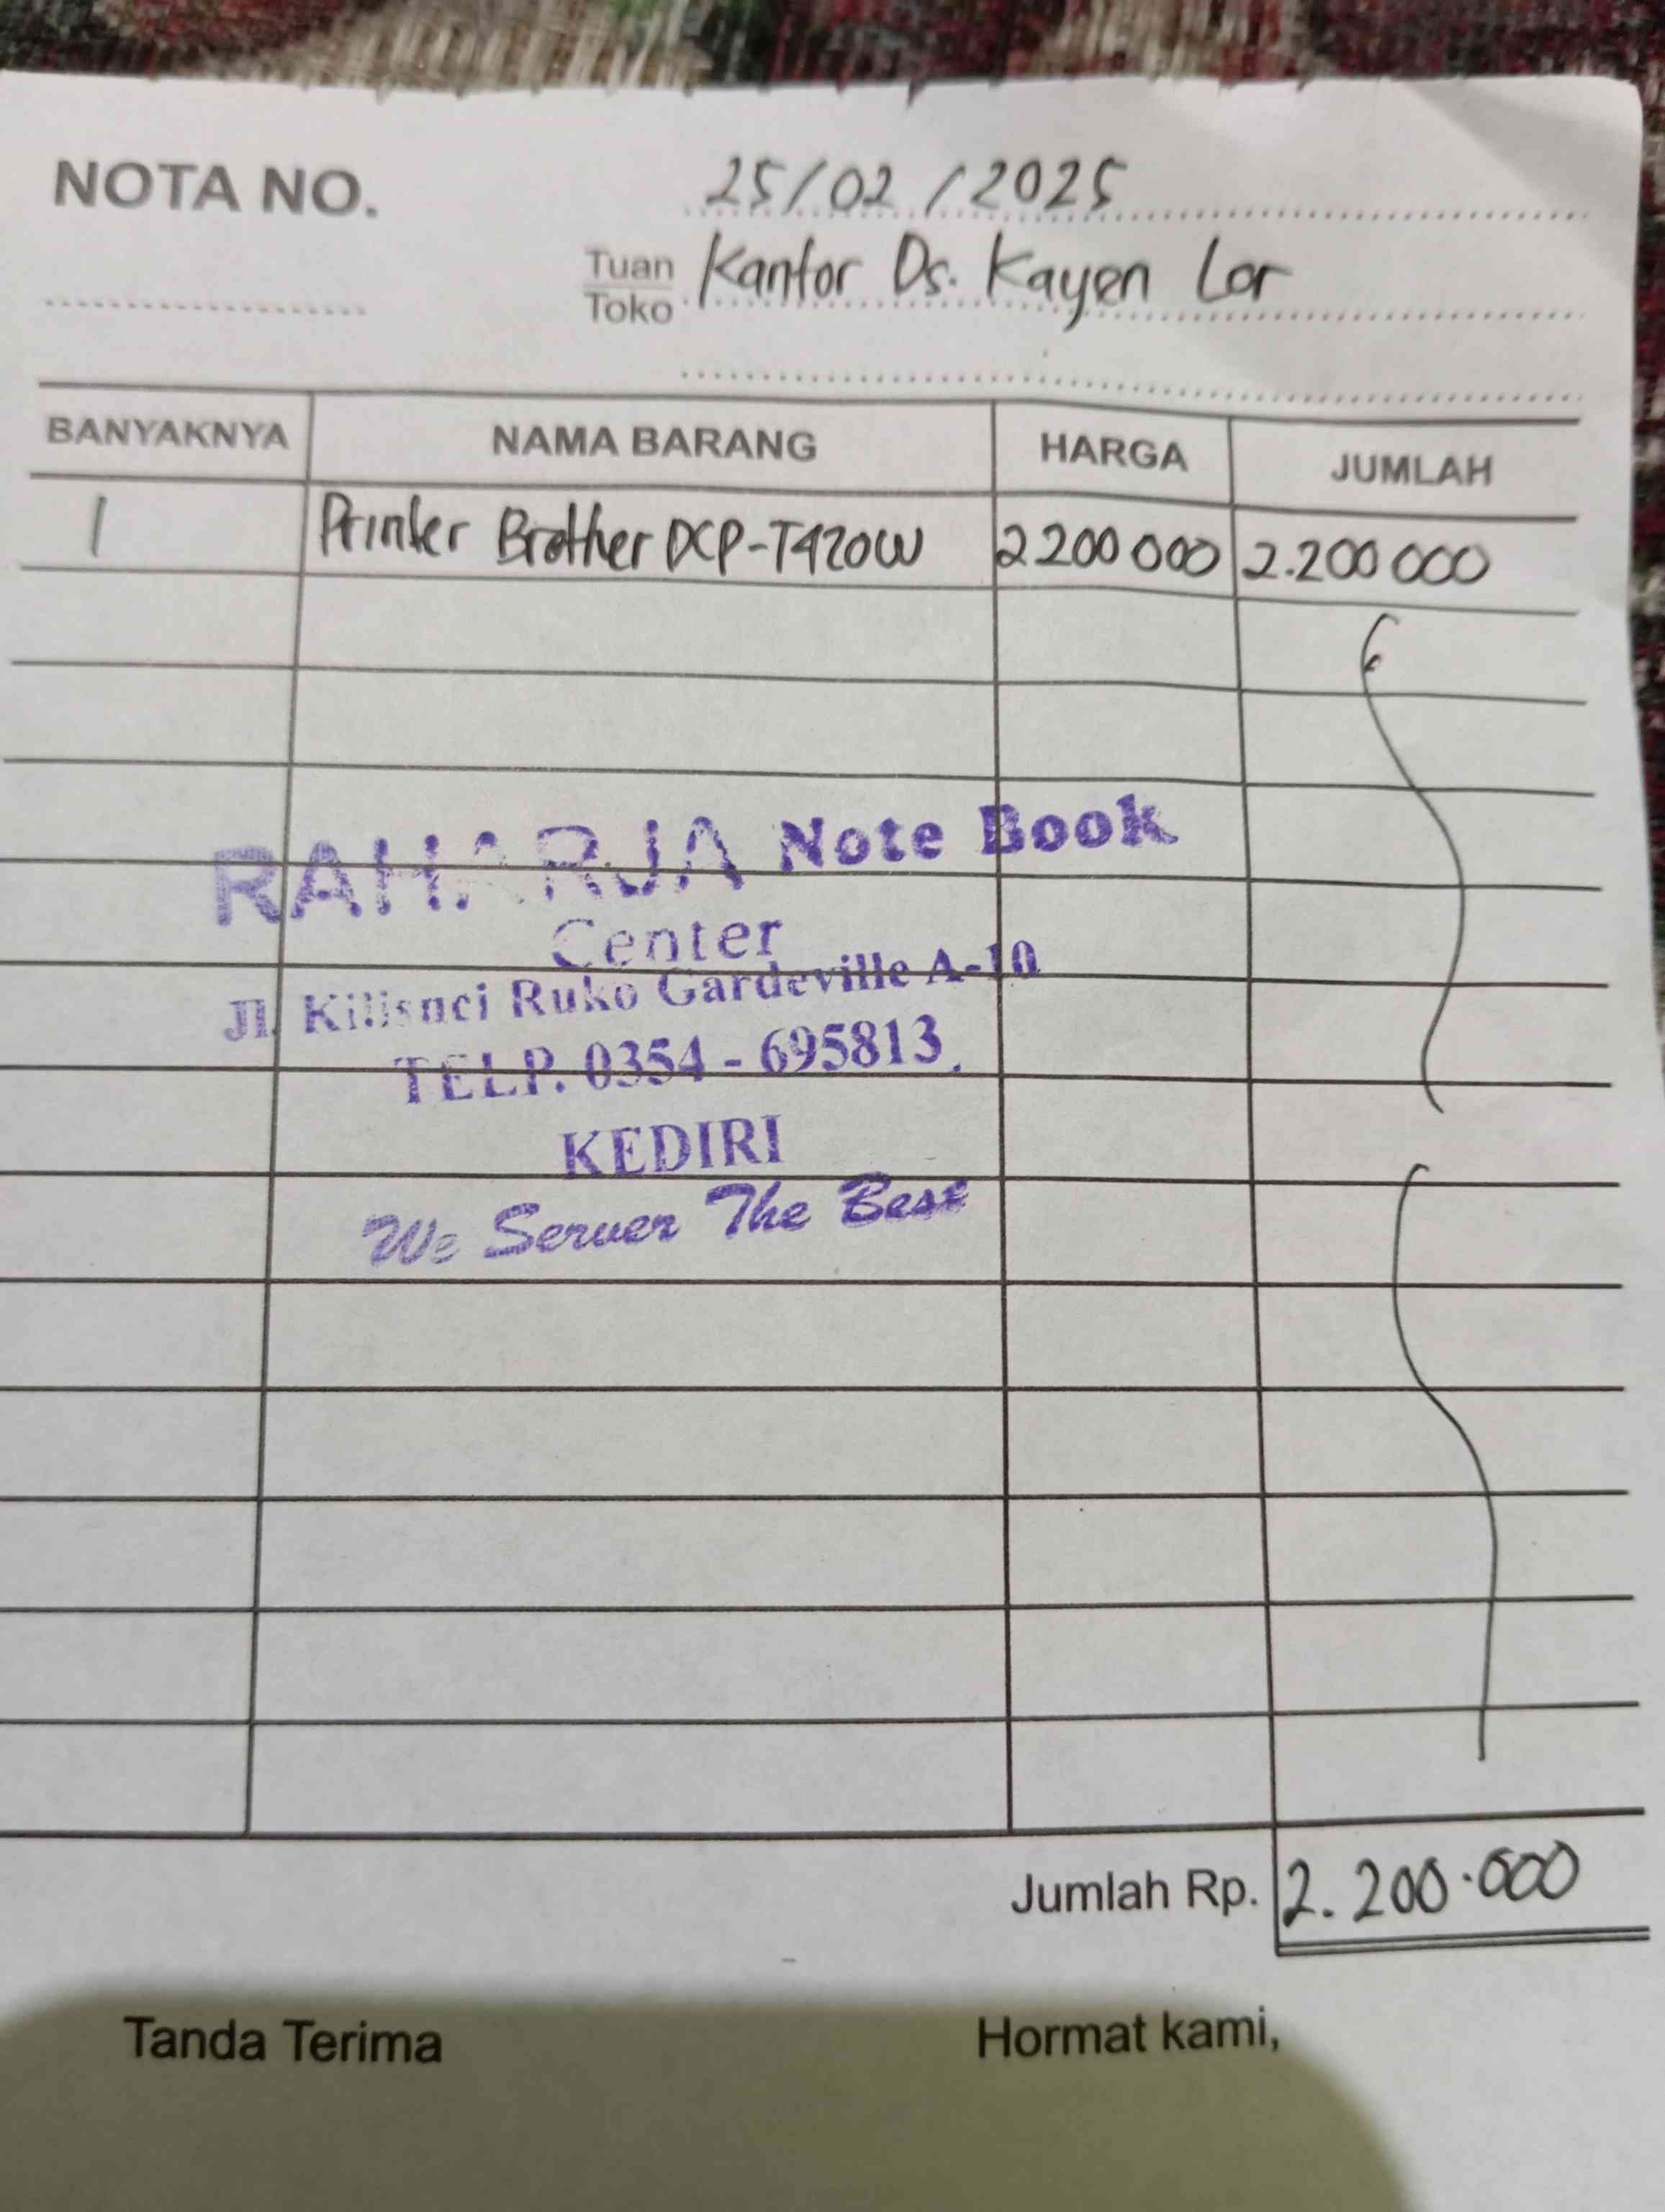 NOTA NO.
25/02/2025
Tuan
Toko
Kantor Ds. Kayen Lor
BANYAKNYA NAMA BARANG HARGA JUMLAH
1 Printer Brother DCP-T420W 2200 000 2.200 000
RAHARJA Note Book
Center
Jl. Kilisuci Ruko Gardeville A-10
TELP. 0354 - 695813
KEDIRI
We Server The Best
Jumlah Rp. 2.200.000
Tanda Terima Hormat kami,